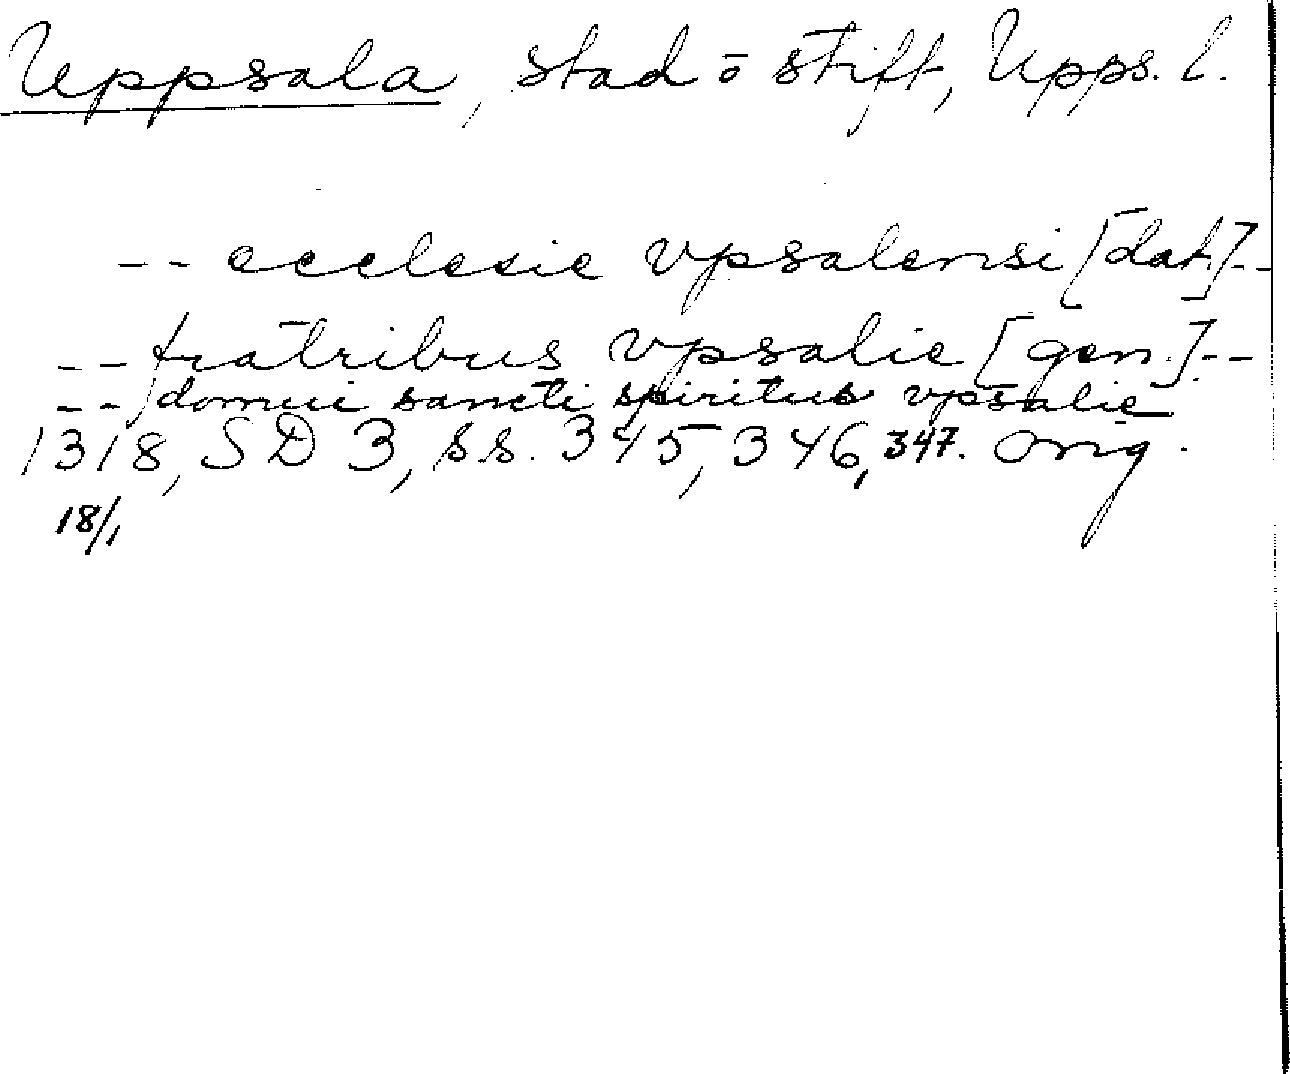 Uppsala, stad o stift, Upps. l.
-- ecclesie vpsalensi [dat.]--
-- fratribus vpsalie [gen.]--
-- domui sancti spiritus vpsalie
1318, SD 3, s.s. 345, 346, 347. orig.
18/1